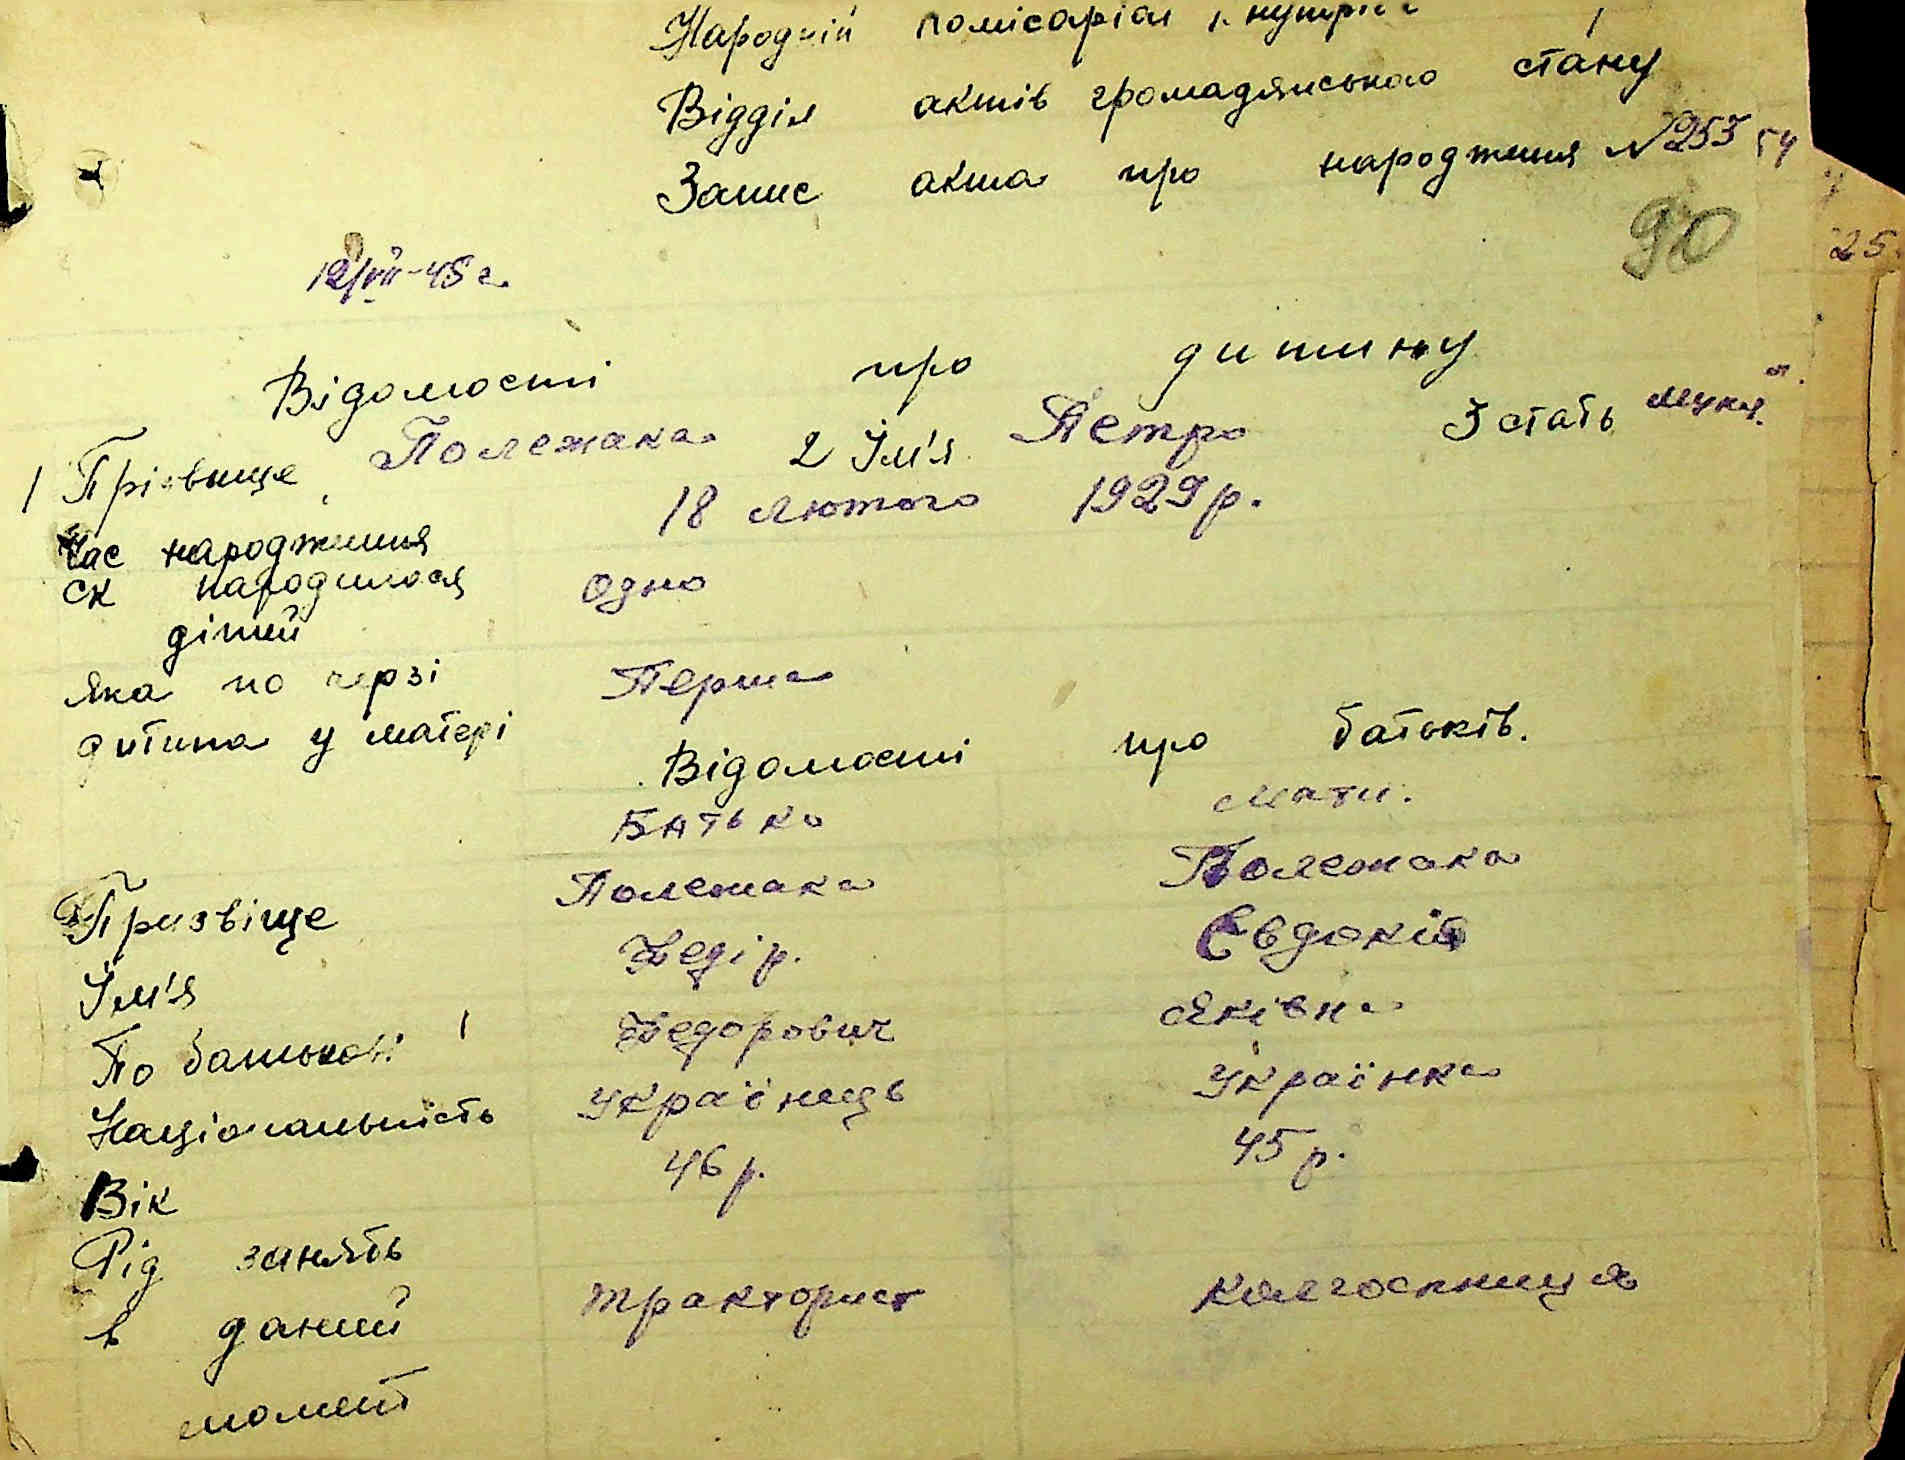 Народній комісаріат внутріш
Відділ актів громадянського стану
Запис акта про народження №253 54
90
25
12/VII-45 г.
Відомості про дитину
1 Прізвище Полежака 2 Ім'я Петро 3 стать мужч.
Час народження 18 лютого 1929 р.
ск народилося одно
дітей
Яка по черзі Перша
дитина у матері
Відомості про батьків.
Батько мати.
Призвіще Полежака Полежака
Ім'я Федір. Євдокія
По батькові Федорович Яківна
Національність Українець Українка
Вік 46 р. 45 р.
Рід занять
в даний тракторист колгоспниця
момент